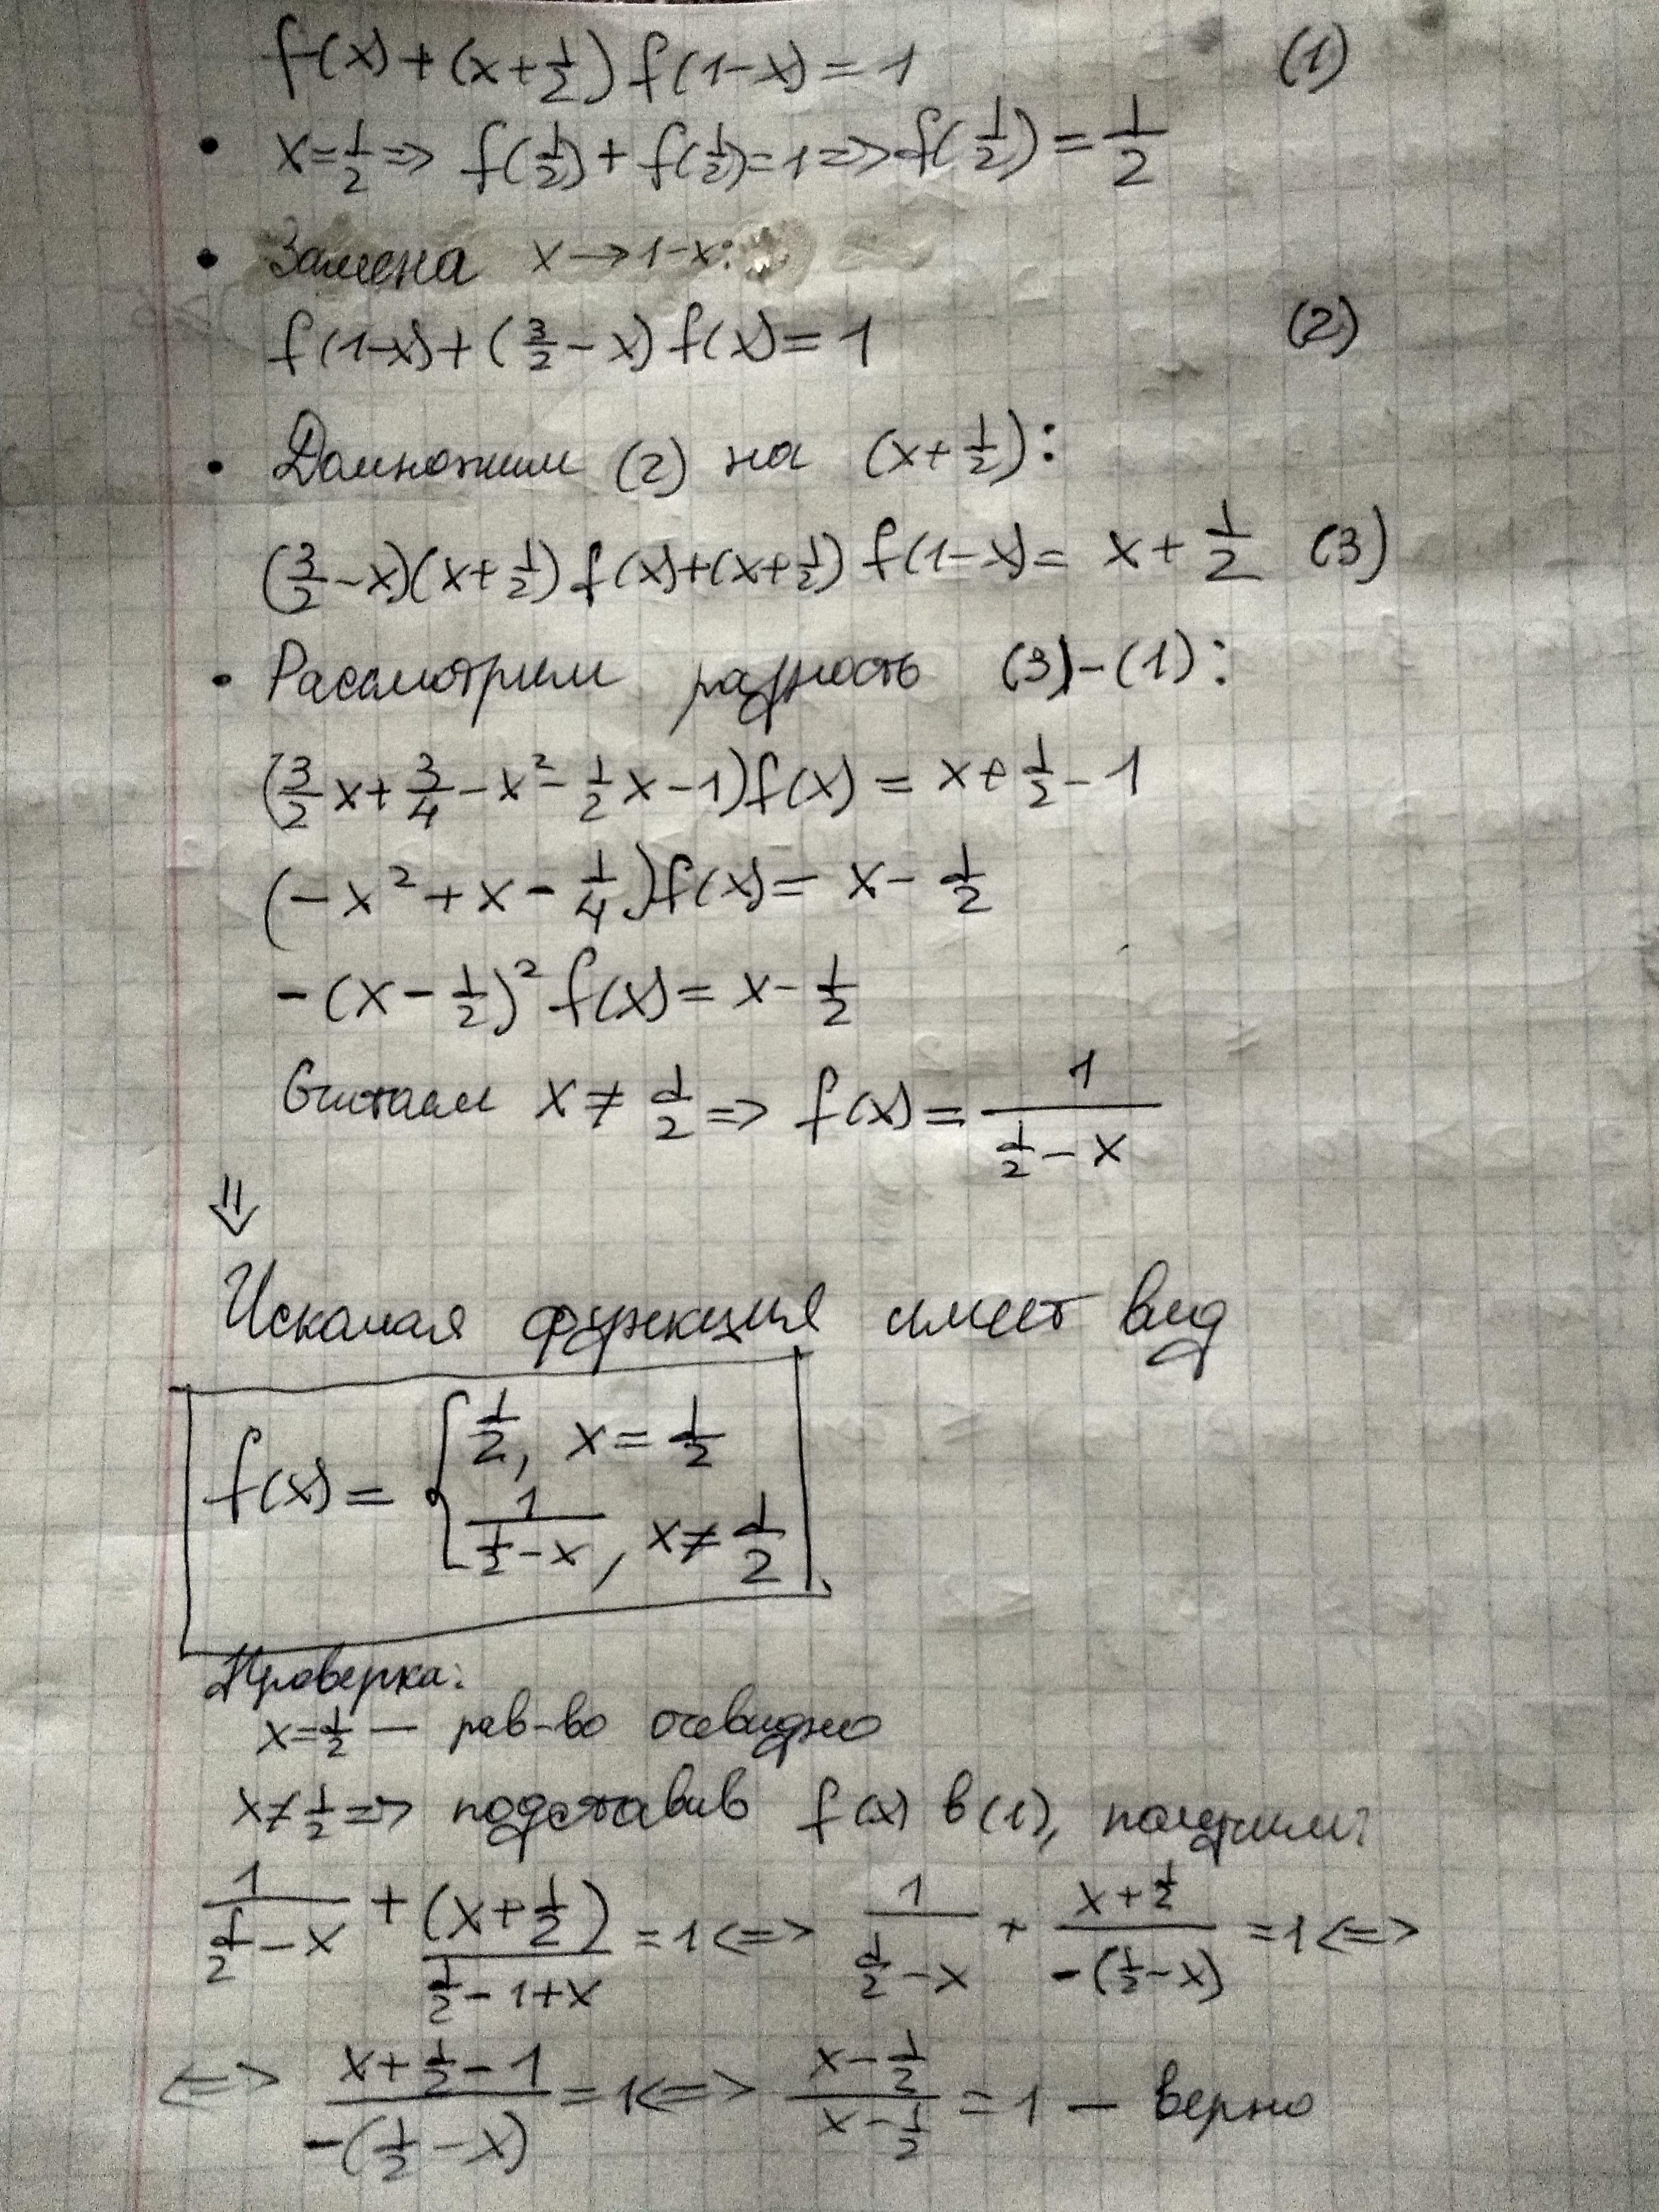 f(x) + (x + 1/2) f(1-x) = 1 (1)
• x = 1/2 => f(1/2) + f(1/2) = 1 => f(1/2) = 1/2
• Замена x → 1-x:
f(1-x) + (3/2 - x) f(x) = 1 (2)
• Домножим (2) на (x + 1/2):
(3/2 - x)(x + 1/2) f(x) + (x + 1/2) f(1-x) = x + 1/2 (3)
• Рассмотрим разность (3) - (1):
(3/2 x + 3/4 - x² - 1/2 x - 1) f(x) = x + 1/2 - 1
(-x² + x - 1/4) f(x) = x - 1/2
-(x - 1/2)² f(x) = x - 1/2
Считаем x ≠ 1/2 => f(x) = 1/(1/2 - x)
⇓
Искомая функция имеет вид
f(x) = { 1/2, x = 1/2
1/(1/2 - x), x ≠ 1/2
Проверка:
x = 1/2 — рав-во очевидно
x ≠ 1/2 => подставив f(x) в (1), получим:
1/(1/2 - x) + (x + 1/2)/(1/2 - 1 + x) = 1 <=> 1/(1/2 - x) + (x + 1/2)/(-(1/2 - x)) = 1 <=>
<=> (x + 1/2 - 1)/(-(1/2 - x)) = 1 <=> (x - 1/2)/(x - 1/2) = 1 — верно